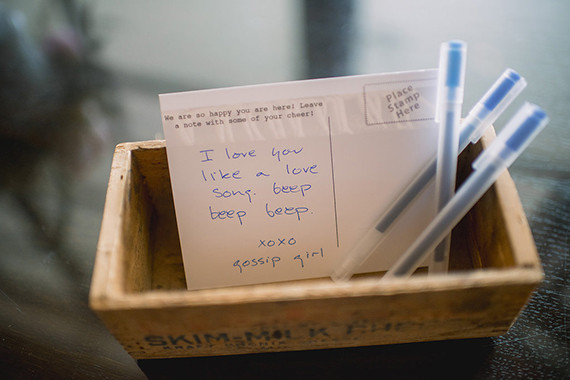 We are so happy you are here! Leave
a note with some of your cheer!
Place
Stamp
Here
I love you
like a love
song. beep
beep beep.
xoxo
gossip girl
SKIM-MILK